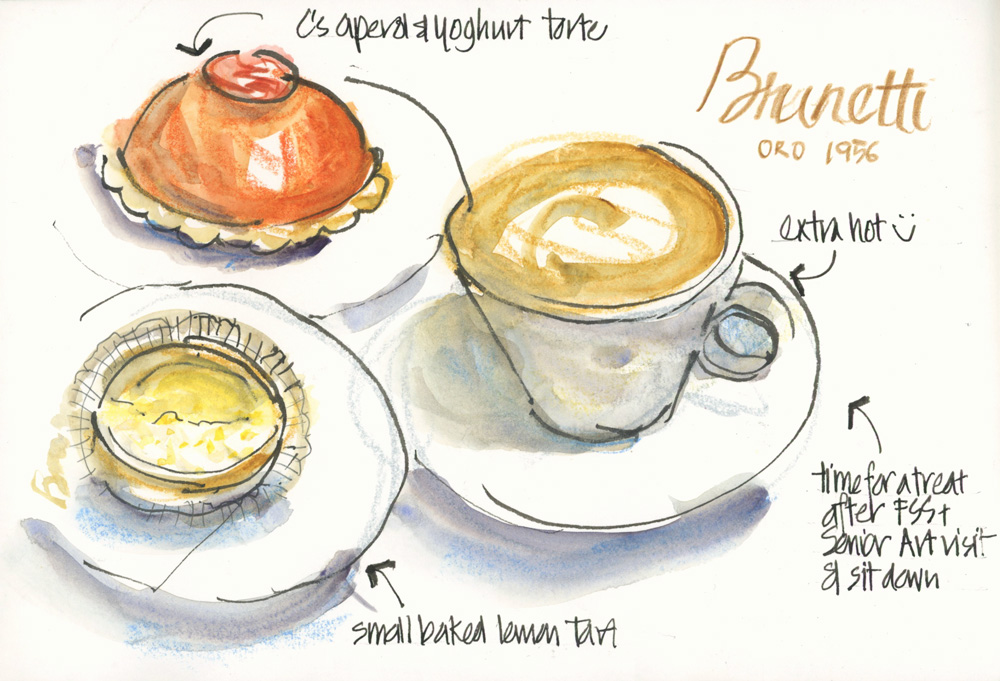 C's aperol & yoghurt torte
Brunetti
ORO 1956
extra hot
time for a treat
after FSS+
Senior Art visit
& sit down
small baked lemon tart